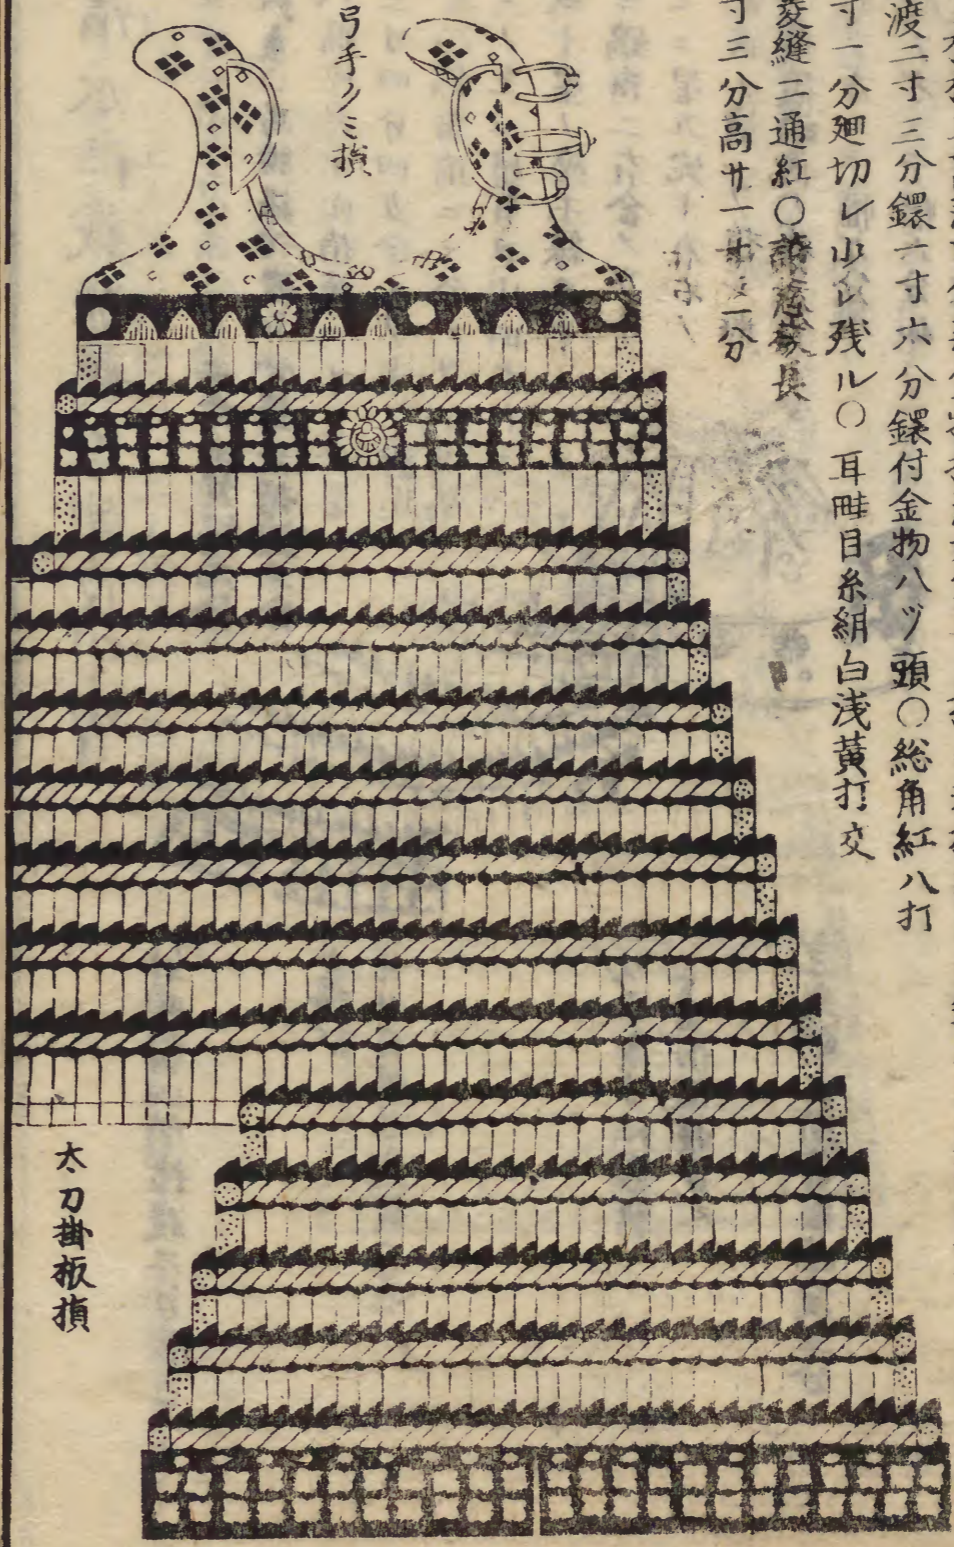 渡二寸三分鐶一寸六分鐶付金物八ツ頭〇総角紅八打
寸一分廻切レ少シ残ル〇耳畦目糸絹白浅黄打交
菱縫二通紅〇長
寸三分高サ一寸二分
弓手ノミ損
太刀掛板損